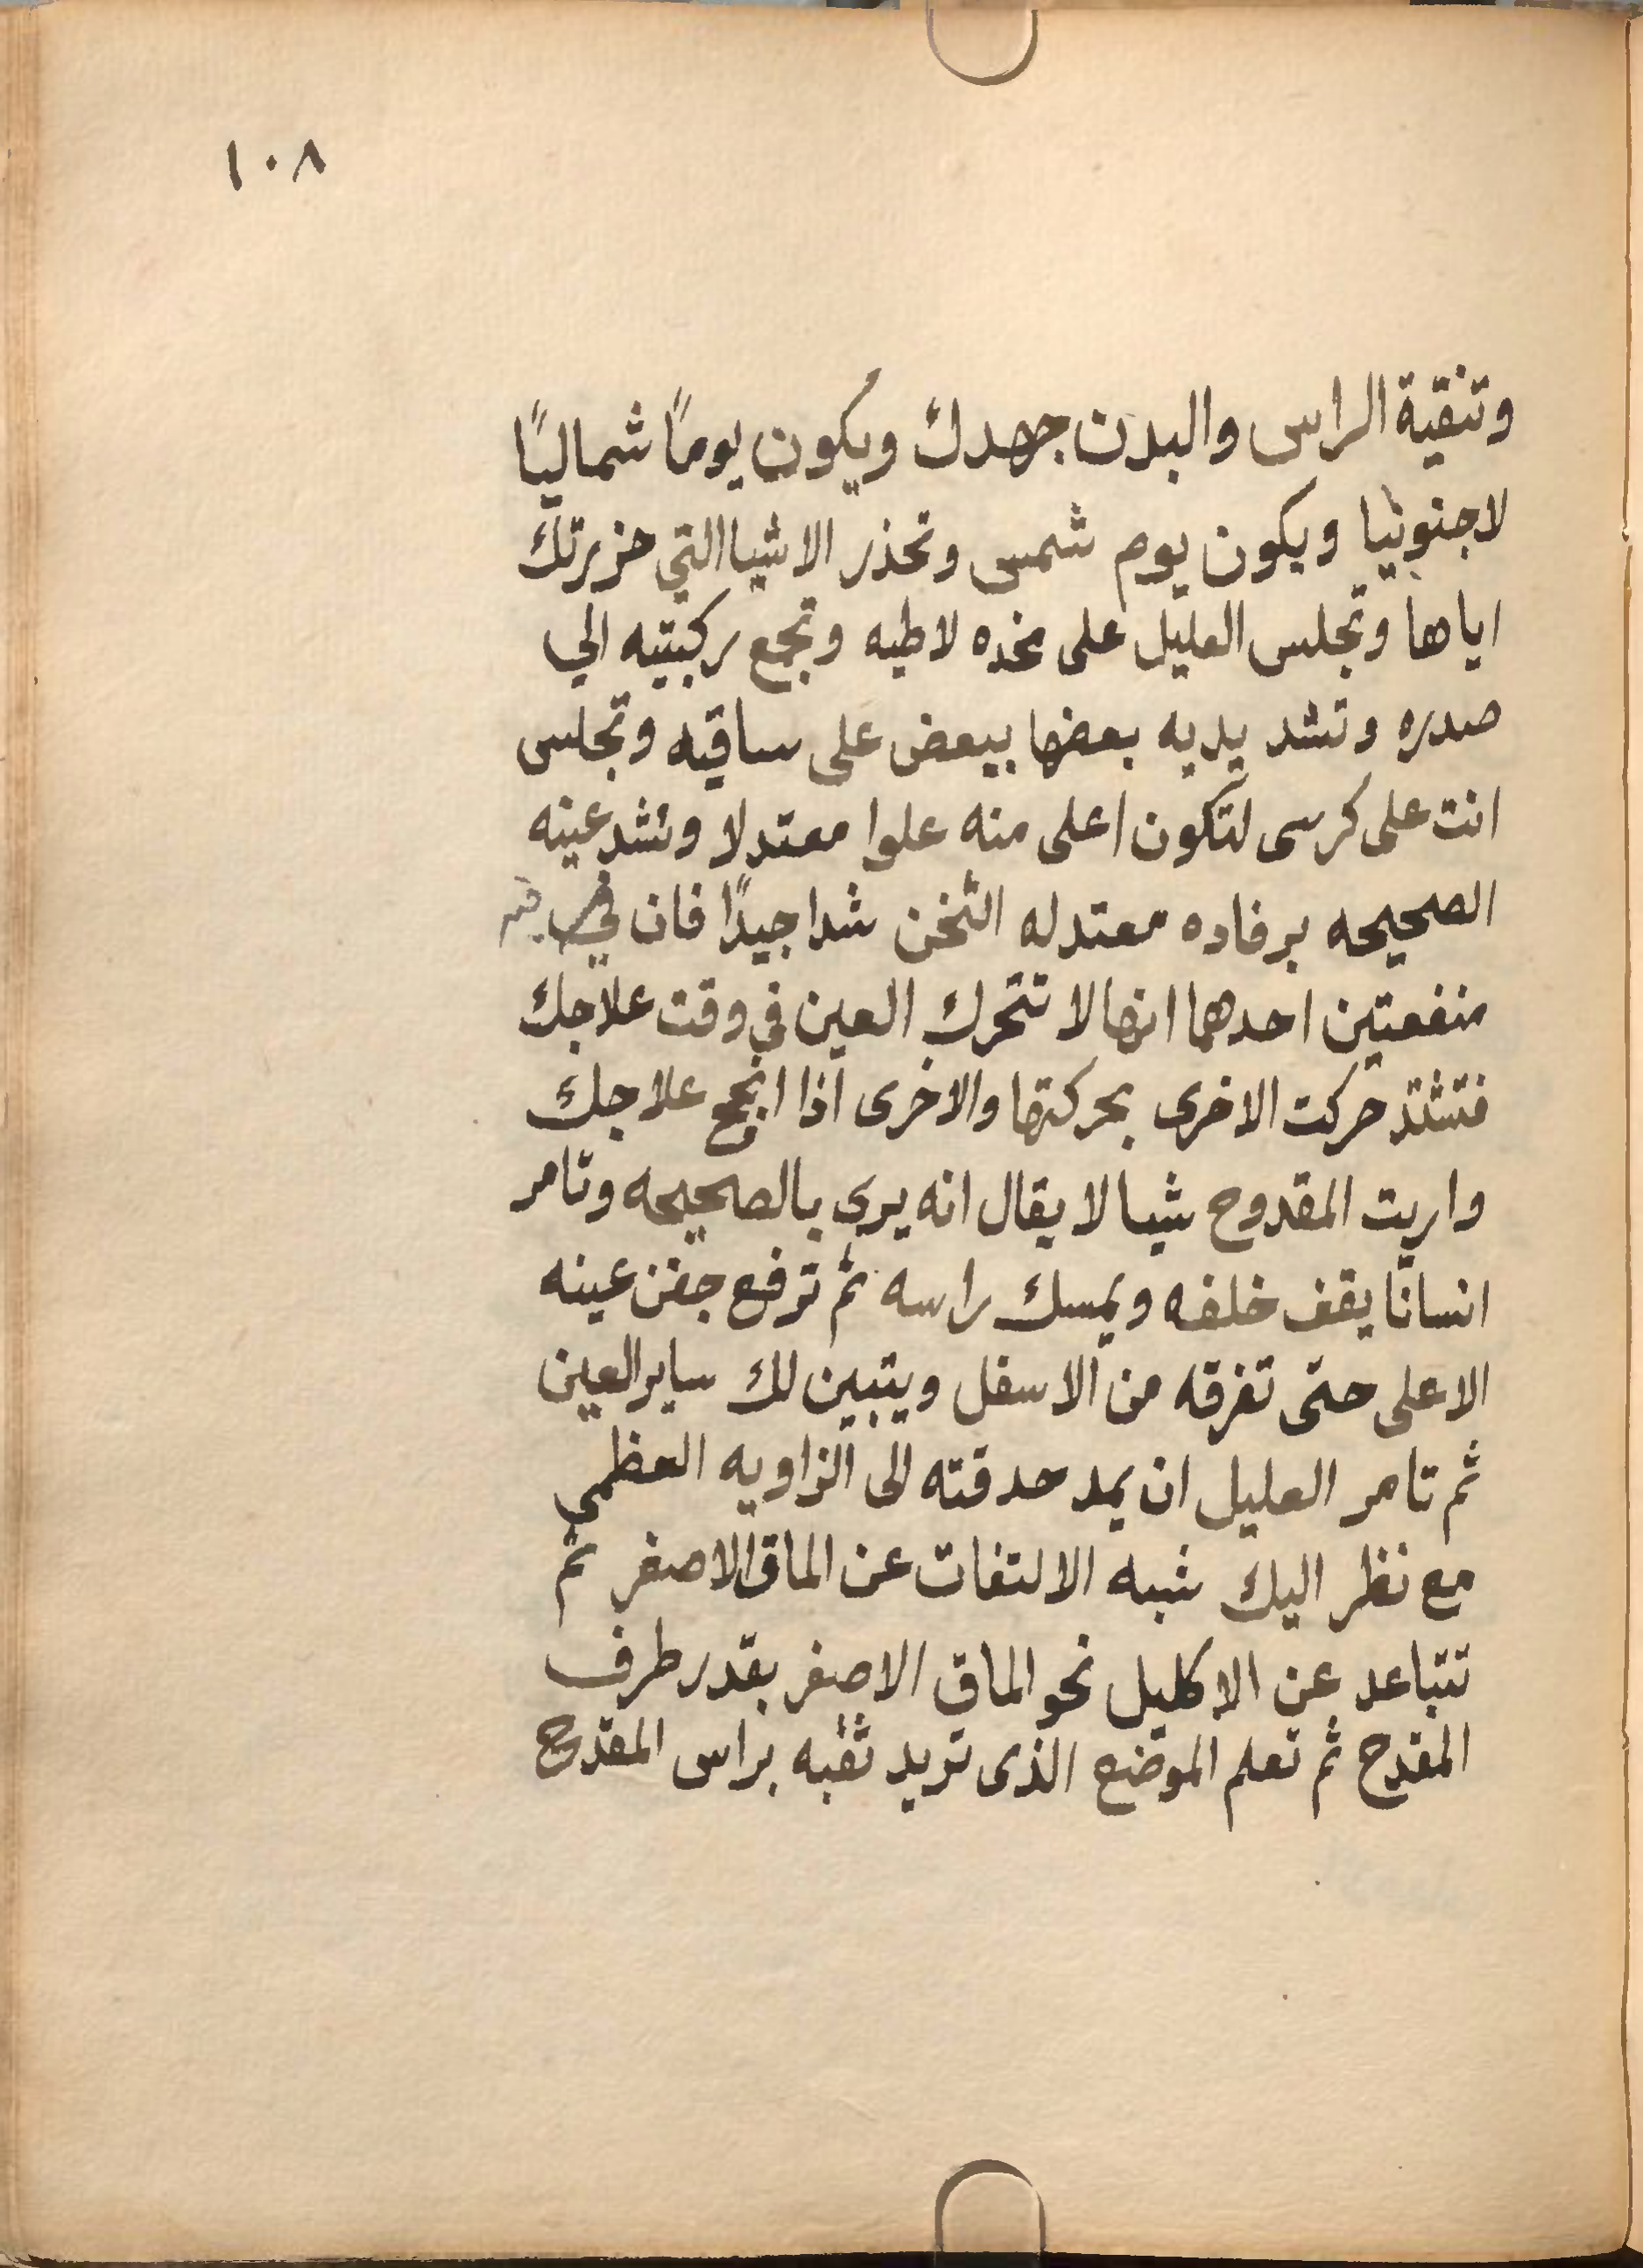 ١٠٨
وتنقية الراس والبدن جهدك ويكون يومًا شماليًا
لاجنوبيا ويكون يوم شمس وتحذر الاشيا التي حزرتك
اياها وتجلس العليل على مخده لاطيه وتجمع ركبتيه الي
صدره وتشد يديه بعضها ببعض على ساقيه وتجلس
انت على كرسى لتكون اعلى منه علوا معتدلا وتشد عينه
الصحيحه برفاده معتدله الثخن شدا جيدًا فان في
منفعتين احدهما انها لا تتحرك العين في وقت علاجك
فتشتد حركت الاخرى بحركتها والاخرى اذا انجح علاجك
واريت المقدوح شيا لا يقال انه يرى بالصحيحه وتامر
انسانا يقف خلفه ويمسك راسه ثم ترفع جفن عينه
الاعلى حتى تفرقه من الاسفل ويتبين لك ساير العين
ثم تامر العليل ان يمد حدقته الى الزاويه العظمي
مع نظر اليك شبه الالتفات عن الماق الاصغر ثم
تتباعد عن الاكليل نحو الماق الاصغر بقدر طرف
المقدح ثم تعلم الموضع الذى تريد ثقبه براس المقدح